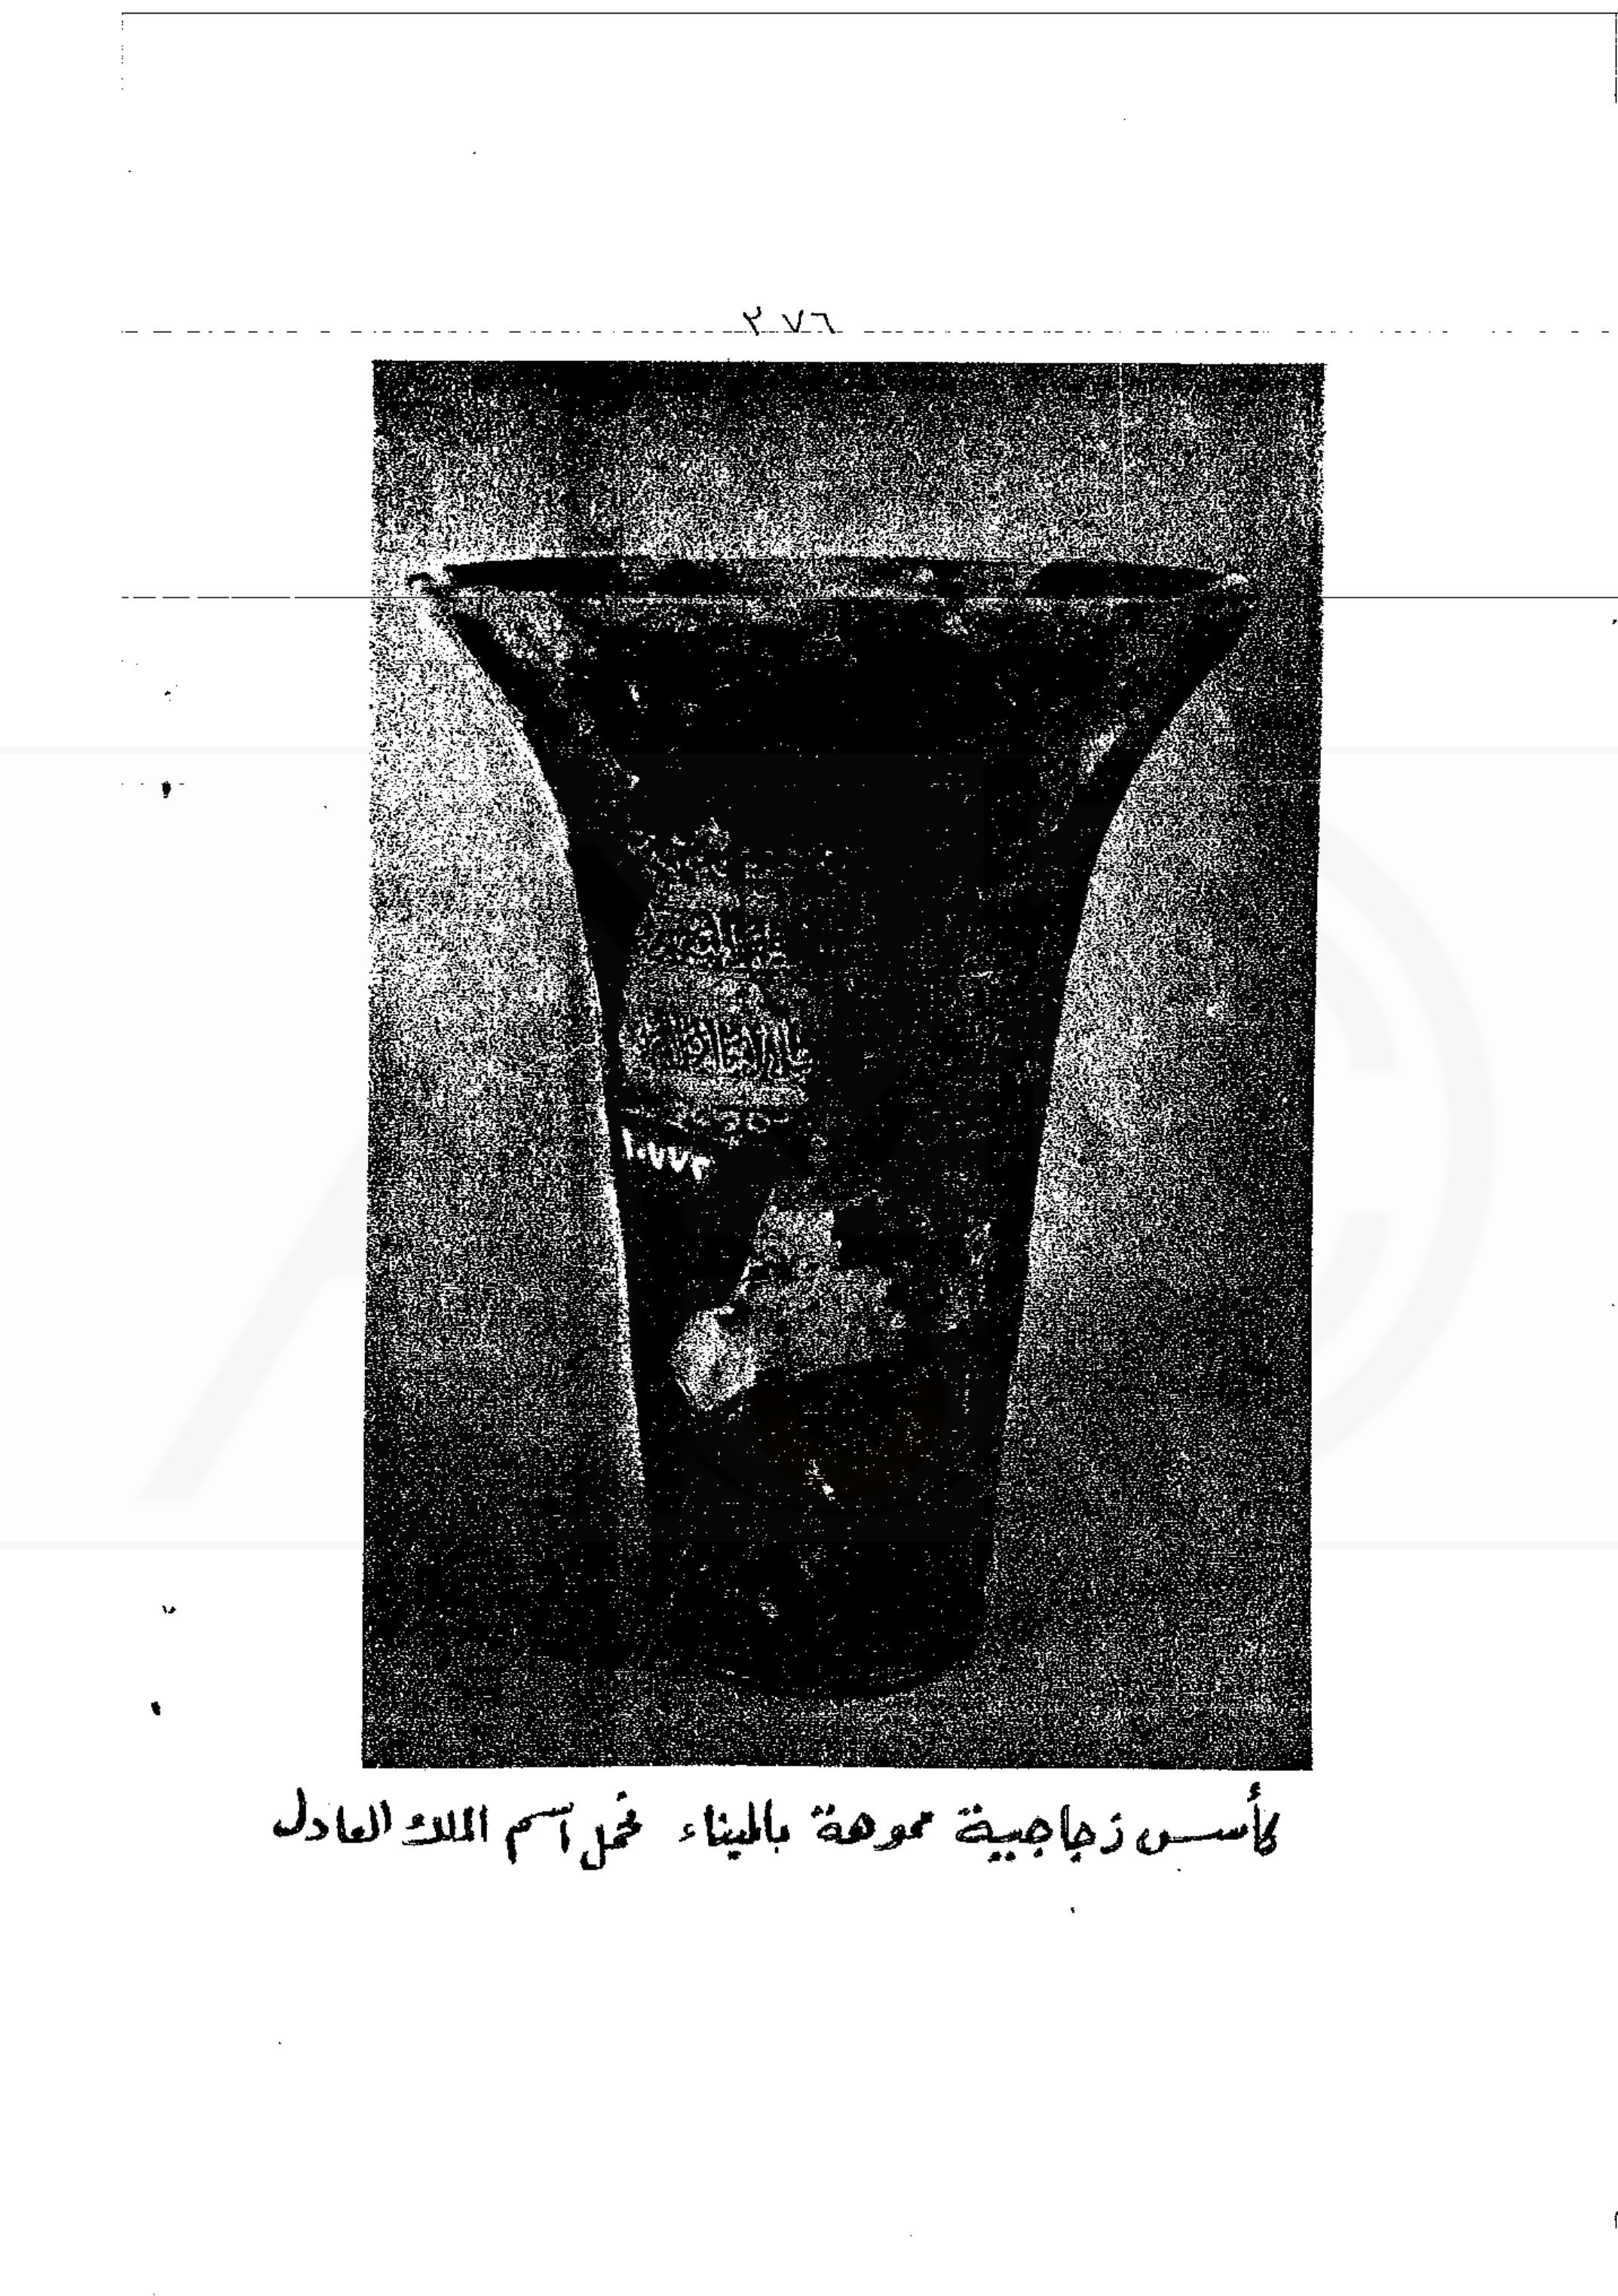 ٢٧٦
١٠٧٧٢
كأس زجاجية مموهة بالميناء تحمل اسم الملك العادل